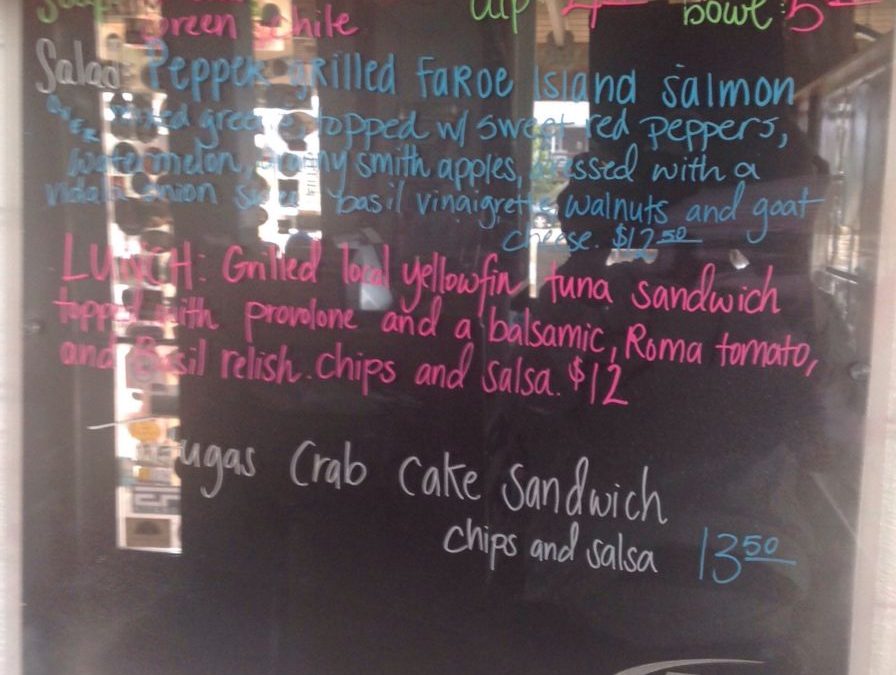 Green chile cup 4 bowl 5
Salad: Pepper grilled Faroe Island Salmon
over mixed greens, topped w/ sweet red peppers,
watermelon, granny smith apples, dressed with a
Vidalia onion sweet basil vinaigrette, walnuts and goat
cheese. $12.50
LUNCH: Grilled local yellowfin tuna sandwich
topped with provolone and a balsamic, Roma tomato,
and Basil relish. chips and salsa. $12
Crab Cake Sandwich
chips and salsa 13.50